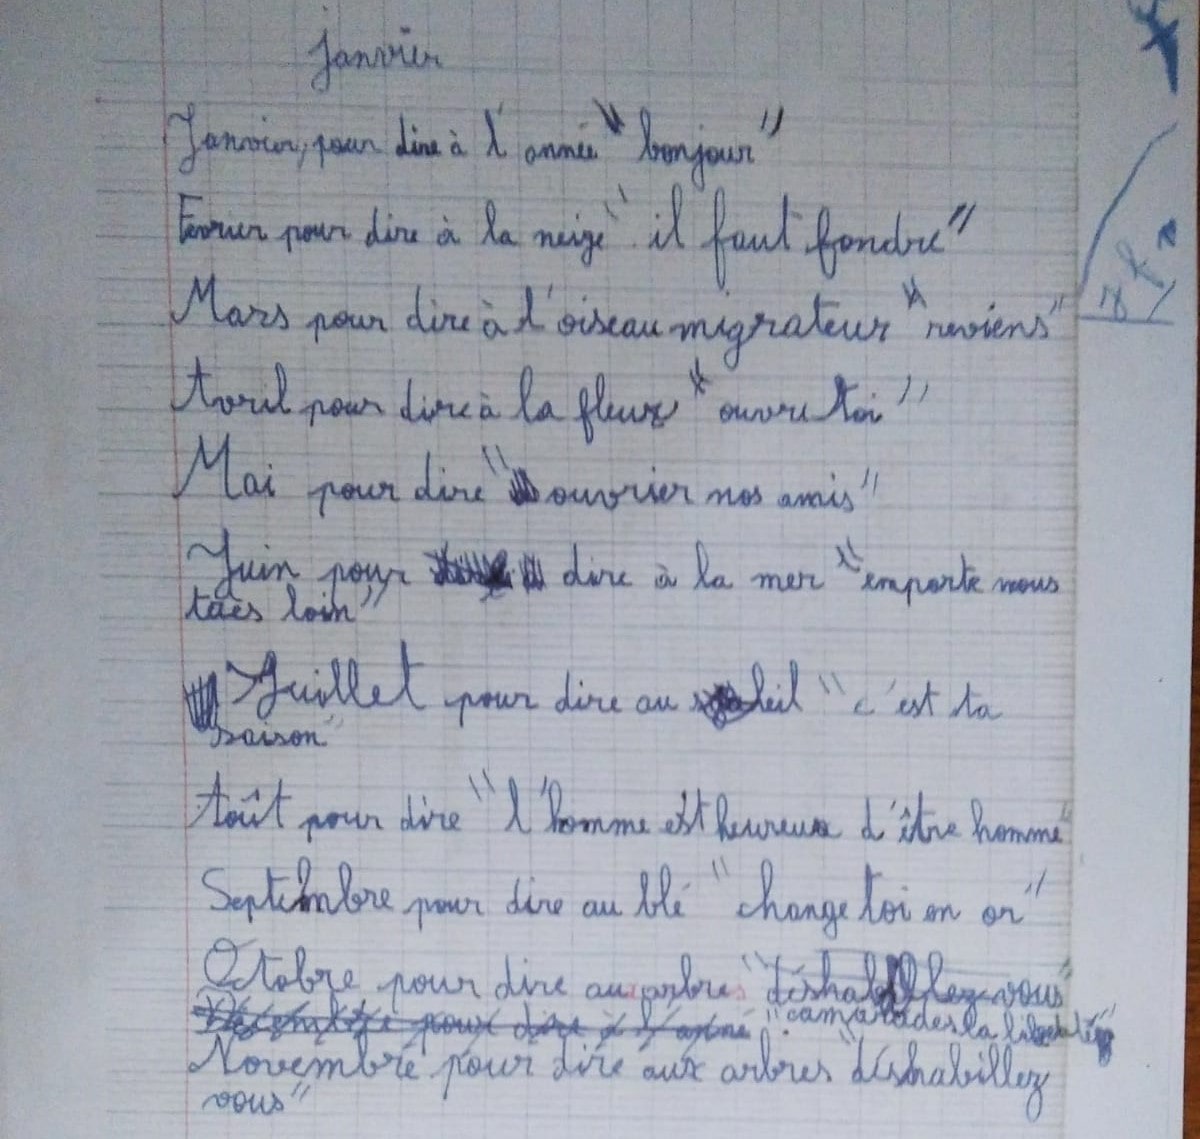 Janvier
Janvier, pour dire à l'année " bonjour "
Fevrier pour dire à la neige " il faut fondre "
Mars pour dire à l'oiseau migrateur " reviens "
Avril pour dire à la fleur " ouvre toi "
Mai pour dire " ouvrier nos amis "
Juin pour dire à la mer " emporte nous
très loin "
Juillet pour dire au soleil " c'est ta
saison "
Août pour dire " l'homme est heureux d'être homme "
Septembre pour dire au blé " change toi en or "
Octobre pour dire aux arbres " déshabillez-vous "
Décembre pour dire à l'année " camarades la
Novembre pour dire aux arbres " déshabillez
vous "